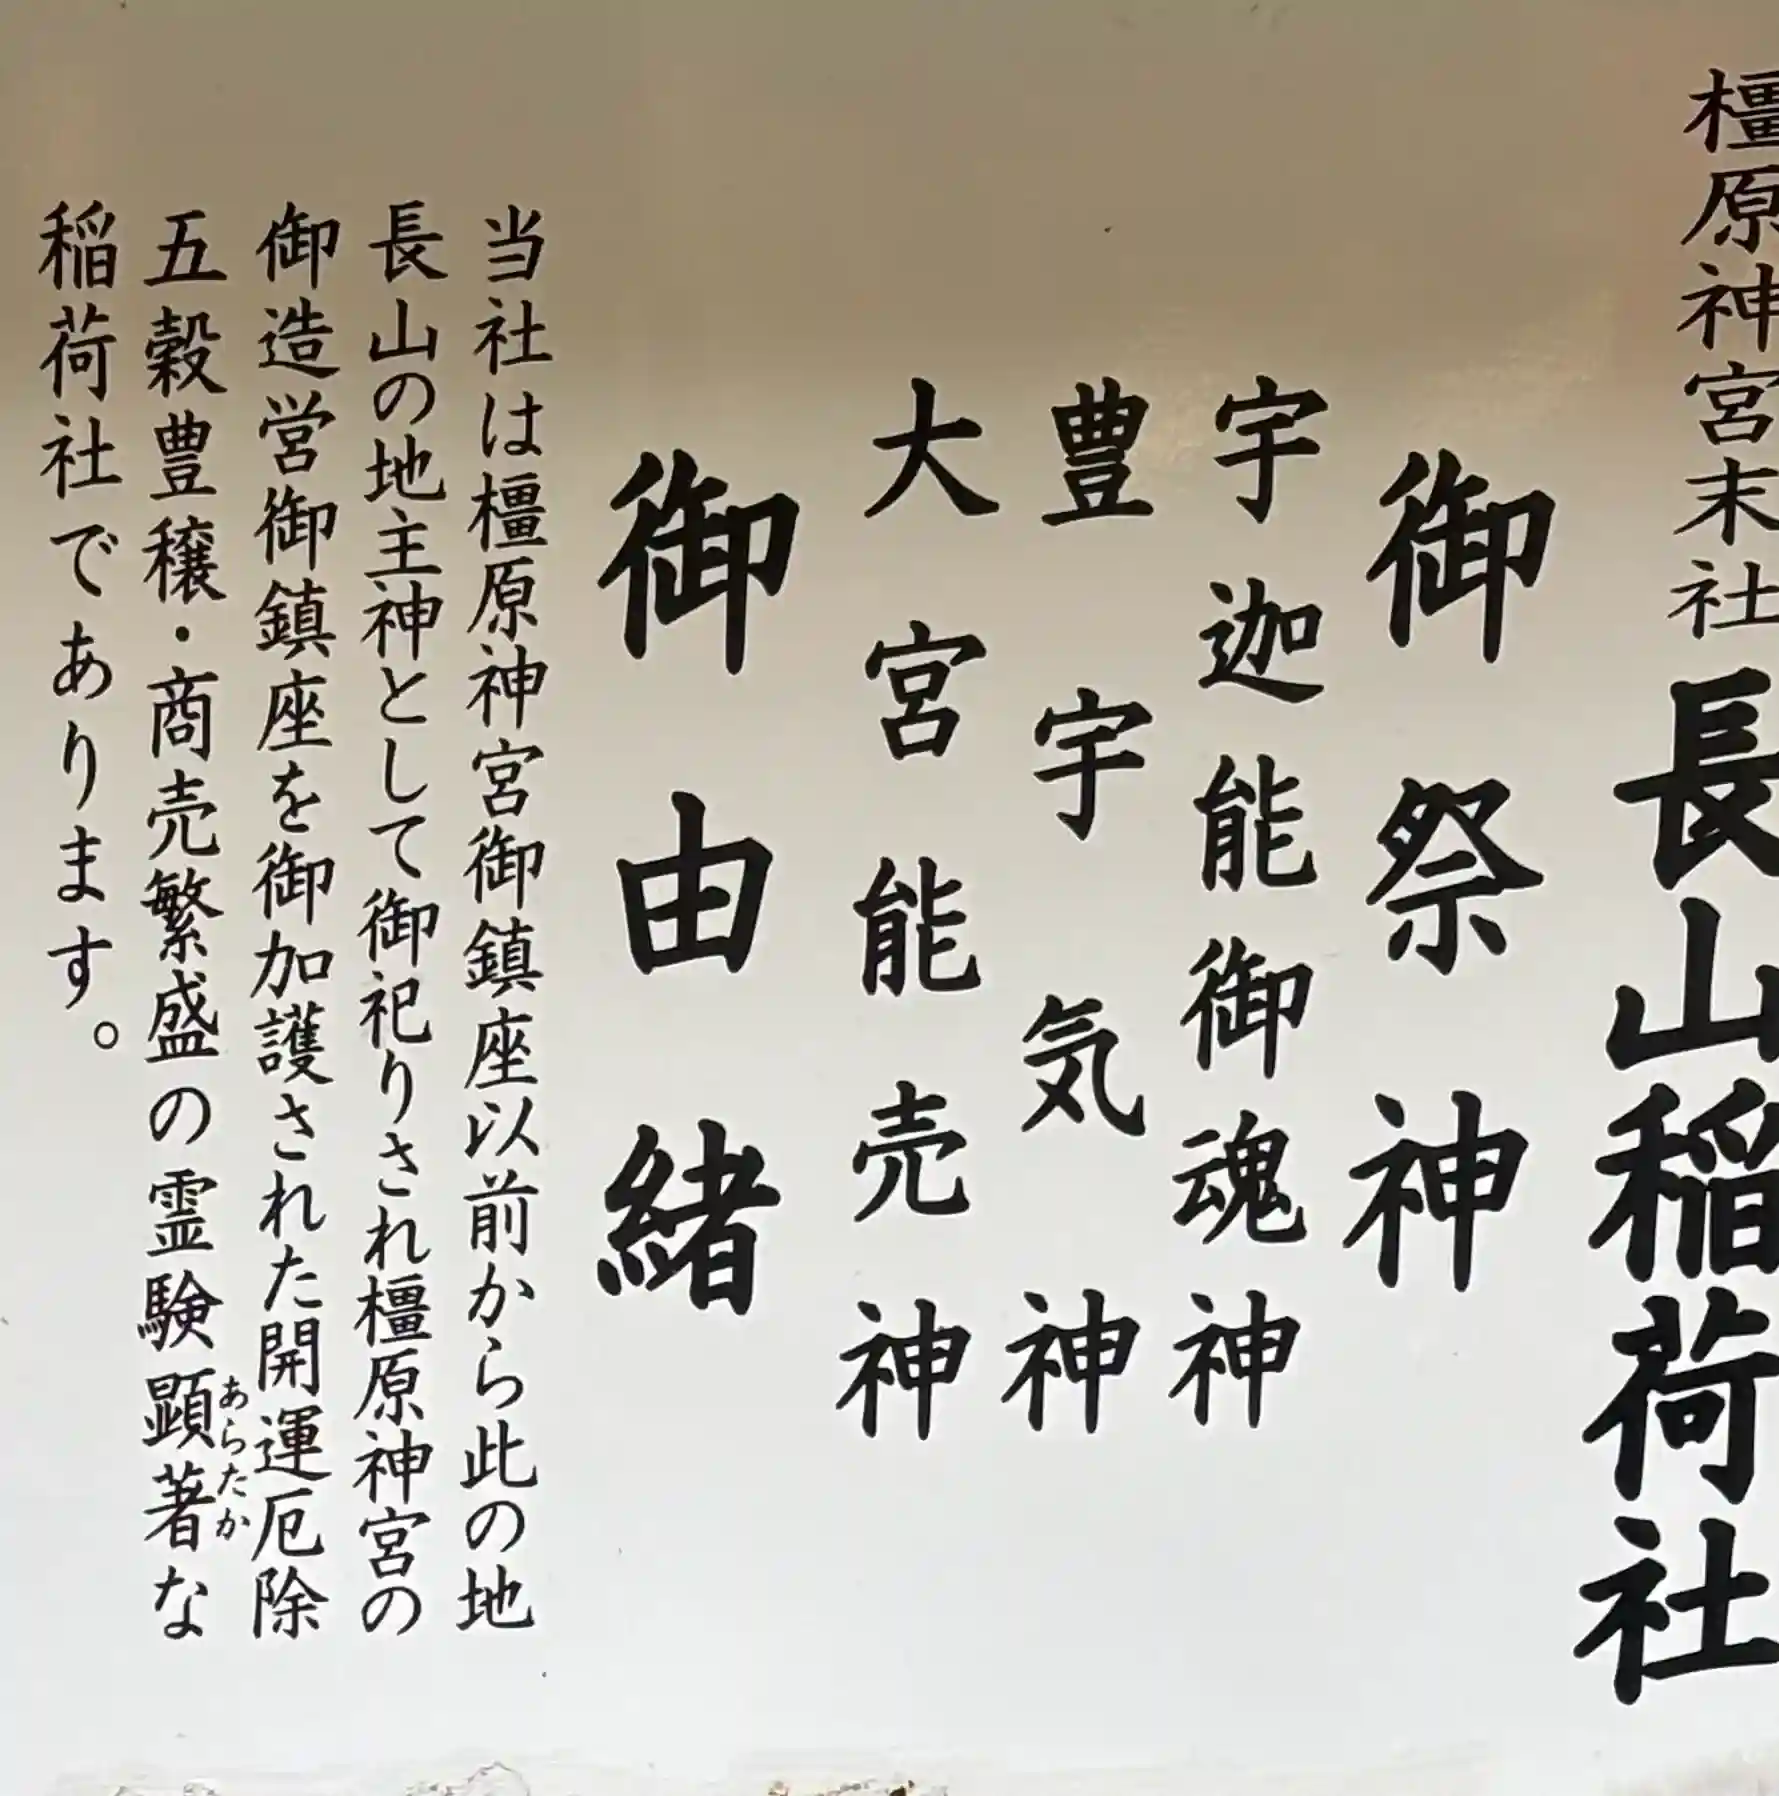 橿原神宮末社 長山稲荷社
御祭神
宇迦能御魂神
豊宇気神
大宮能売神
御由緒
当社は橿原神宮御鎮座以前から此の地
長山の地主神として御祀りされ橿原神宮の
御造営御鎮座を御加護された開運厄除
五穀豊穣・商売繁盛の霊験顕著な
あらたか
稲荷社であります。